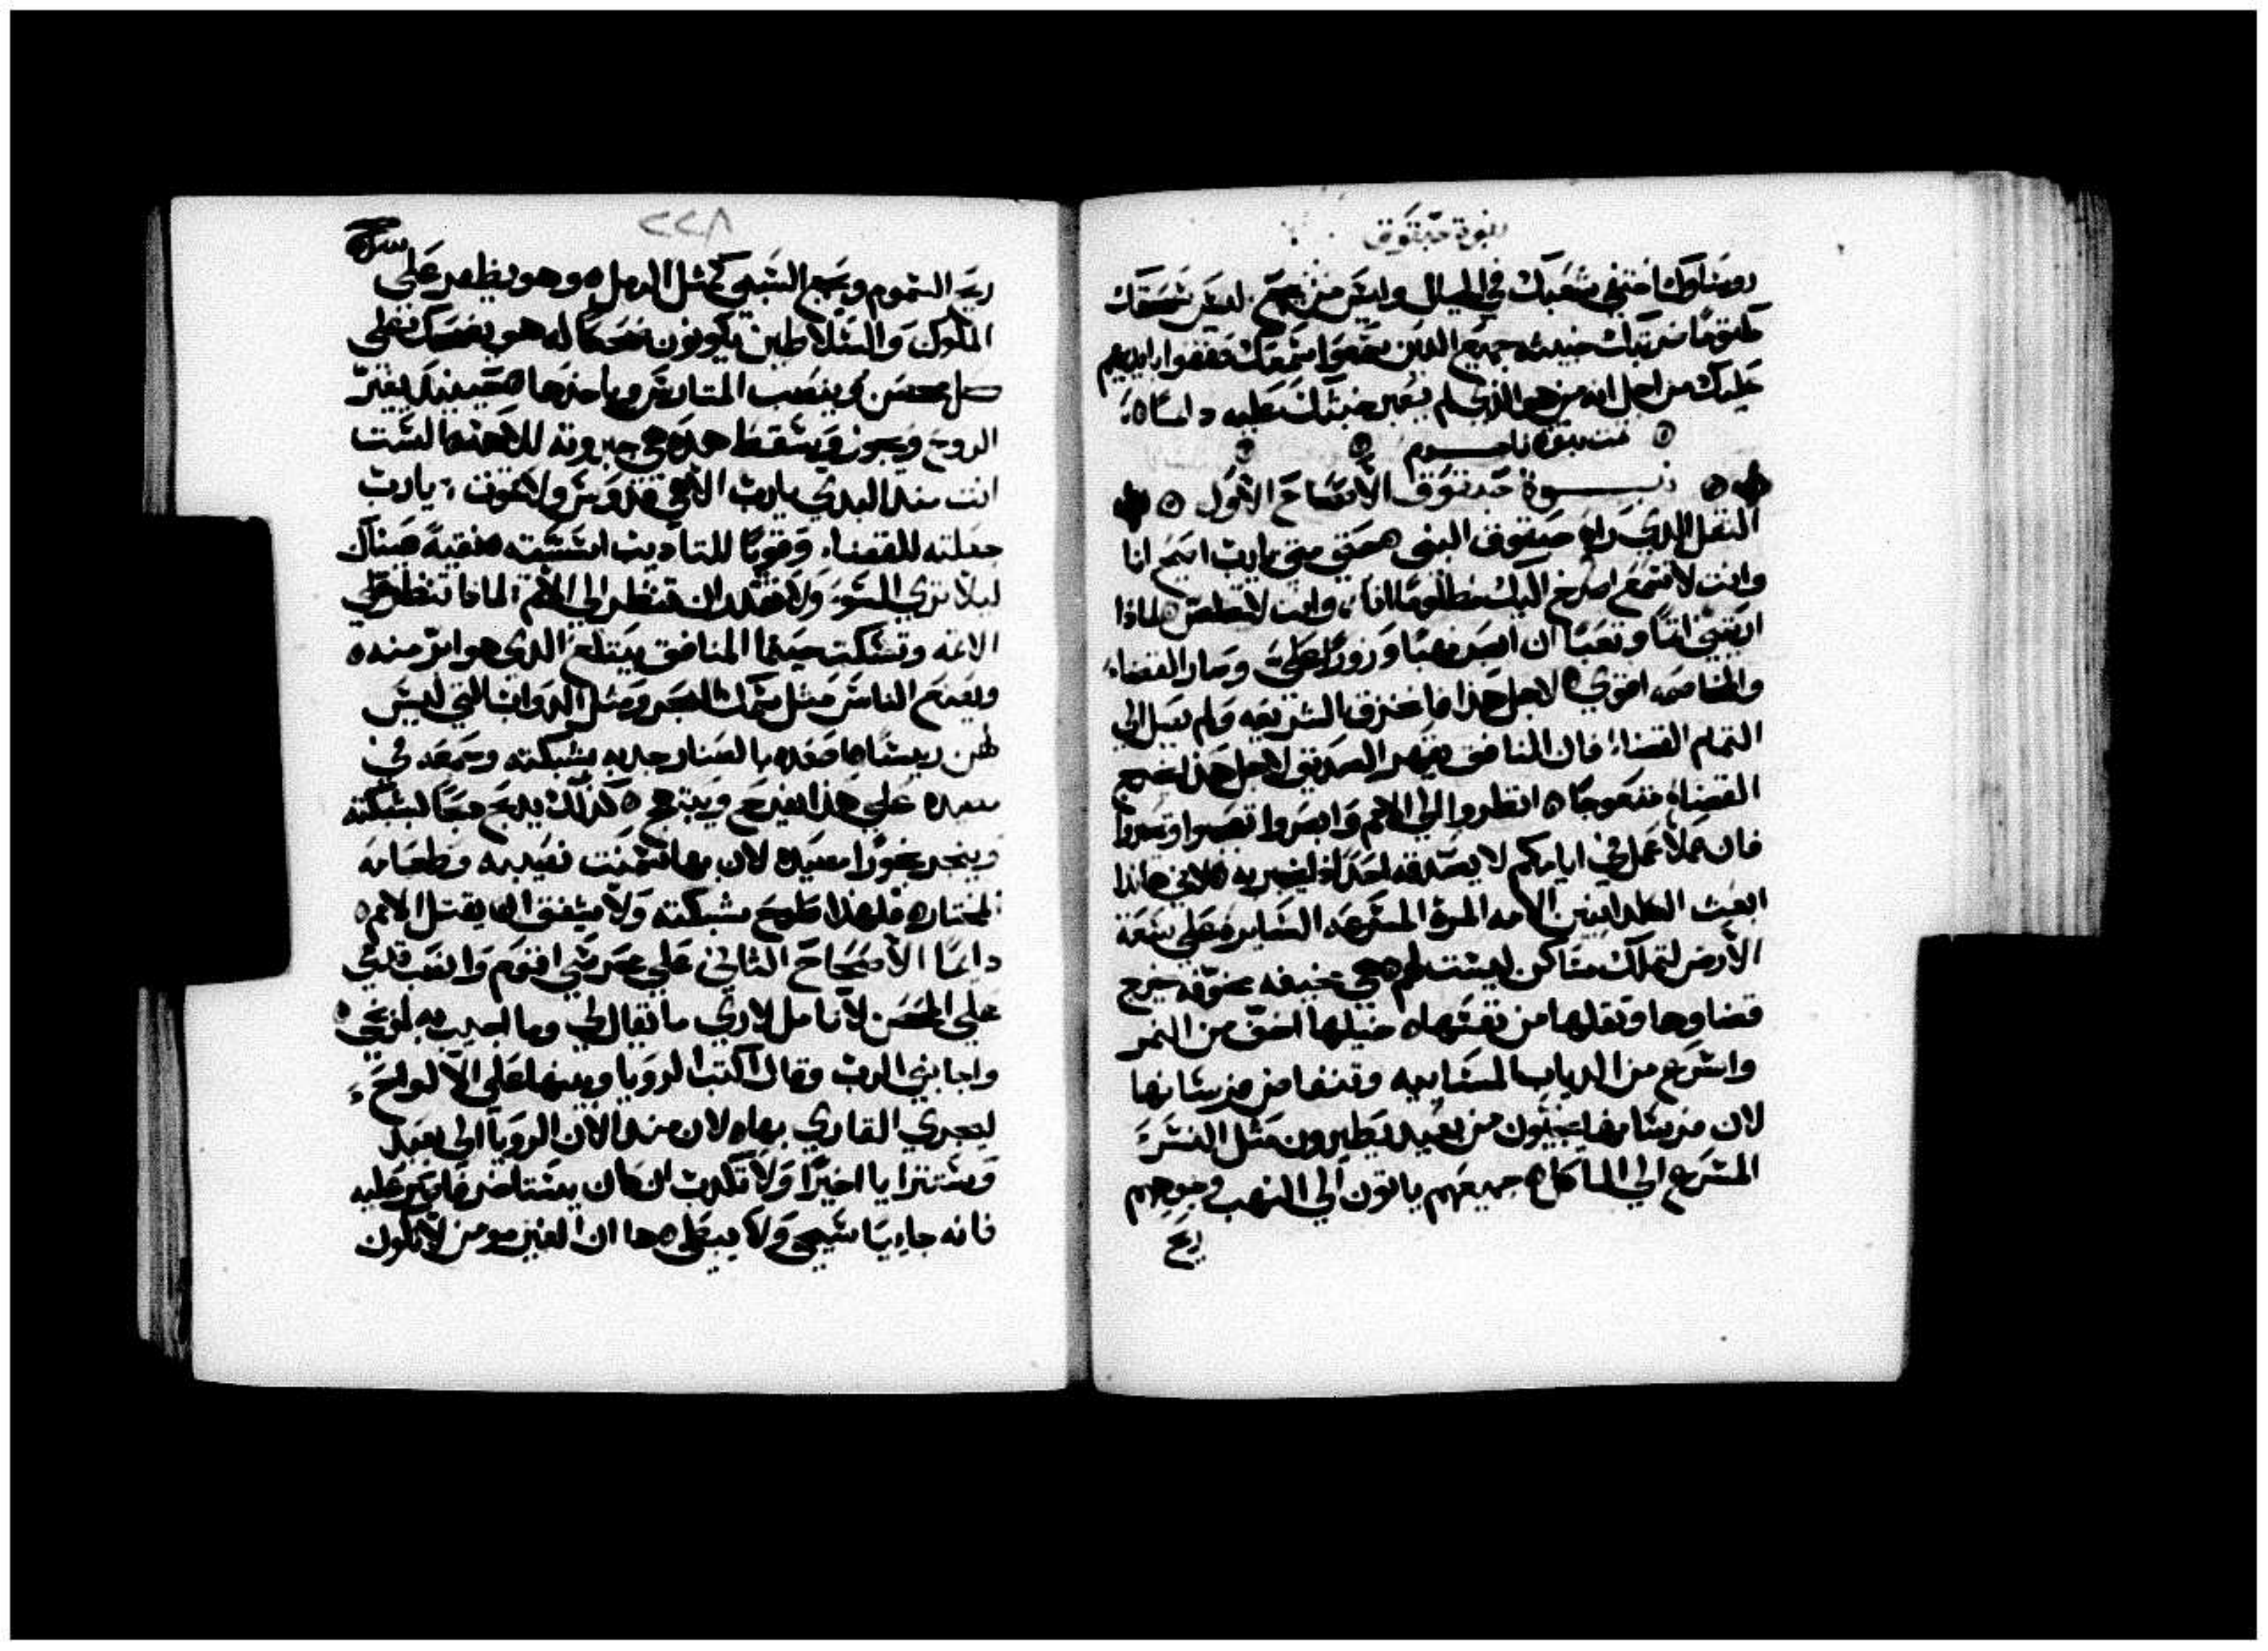 نبوة حبقوق
روساوك اختفى شعبك في الجبال وليس من يجمع ليس سحقك
مكتومًا ضربتك خبيثه جميع الذين سمعوا سمعك صفقوا بايديهم
عليك من اجل انه من هو الذي لم يعبر خبثك عليه دايمًا
تمت نبوة ناحوم
نبوة حبقوق الأصحاح الأول
الثقل الذي راه حبقوق النبي حتى متى يارب اصرخ انا
وانت لا تسمع اصرخ اليك مظلومًا انا وانت لا تخلص لماذا
اريتني اثمًا وتعبًا ان ابصر نهبًا وزورًا علىّ وصار القضاء
والمخاصمه اقوى لاجل هذا ما تخزق الشريعه ولم يصل الي
التمام القضاء فان المنافق يقهر الصديق لاجل هذا يخرج
القضاء متعوجًا انظروا الي الامم وابصروا تعجبوا وتحيروا
فان عملًا عمل في ايامكم لا يصدقه احد اذ ليخبر به لاني هاندا
ابعث الكلدانيين الامه المره المسرعه السايره علي سعة
الأرض لتملك مساكن ليست لها هي مخيفه مخوفه يخرج
قضاوها وثقلها من نفسها خيلها اخف من النمر
واسرع من الدياب المساييه وتنتفض فرسانها
لان فرسانها يجيون من بعيد يطيرون مثل النسر
المسرع الي الماكل جميعهم ياتون الي النهب وجوههم
ريح
٢٢٨
ريح السموم ويجمع السبي كمثل الرمل وهو يظهر علي
الملوك والسلاطين يكونون ضحكًا له هو يضحك علي
كل محصن وينصب المتاريس وياخذها حينيذ يغير
الروح ويجوز ويسقط هذه هي جبروته للاهه الست
انت منذ البدي يارب الاهي قدوسي ولا نموت يارب
جعلته للقضاء وقويًا للتاديب اسسته نقيه عيناك
ليلا تري السوء ولا تقدر ان تنظر الي الأثم لماذا تنظر علي
الاثمه وتسكت حينما المنافق يبتلع الذي هو ابر منه
ويصنع الناس مثل سمك البحر ومثل الدواب التي ليس
لهن ريسًا صعده بالصنار جذبه بشبكته وجمعه في
صيده علي هذا يفرح ويبتهج كذلك يذبح ذبحًا لشبكته
ويبخر بخورًا لمصيده لان بها تسمنت نصيبه وطعامه
المختاره فلهذا طرح شبكته ولا يشفق انما يقتل الامم
دايمًا الأصحاح الثاني علي محرسي اقوم واتصب قدمي
علي الحصن لاتامل لاري ما يقال لي وما اجيب به لموبخي
واجابني الرب وقال اكتب الرويا وبينها علي الألواح
ليجري القاري بها لان منذ الآن الرويا الي بعيد
وستترايا اخيرًا ولا تكذب ان كان يستاخر فاصبر عليه
فانه جاء يا سيجي ولا يبطي ها ان الغير مومن لا تكون